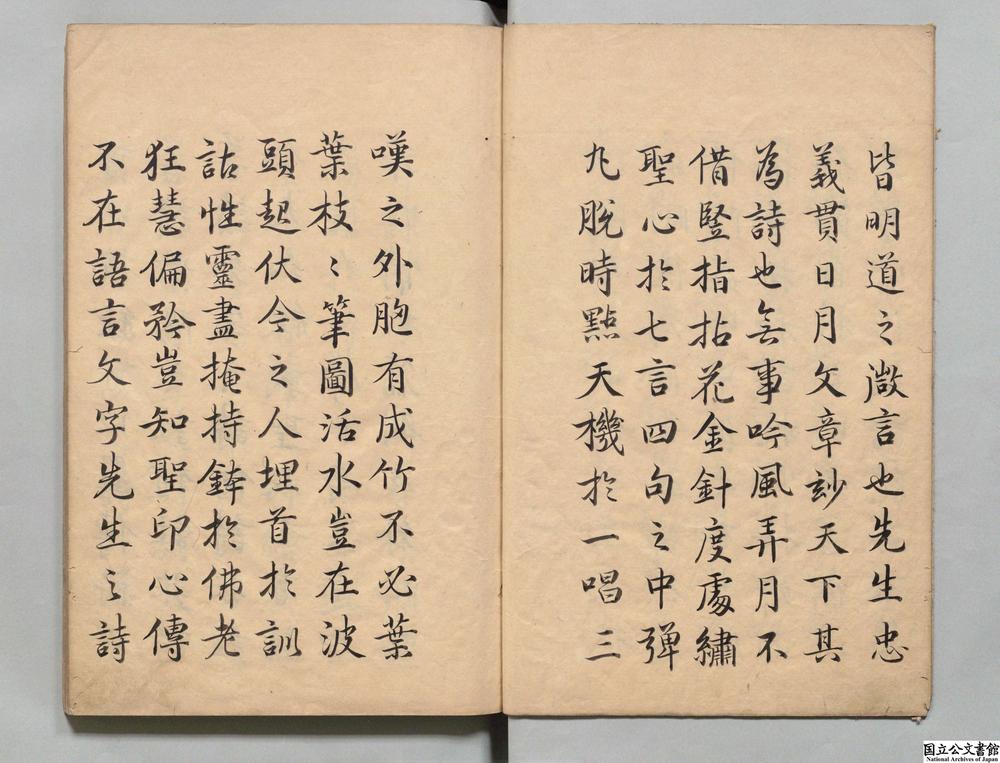 皆明道之微言也先生忠
義貫日月文章妙天下其
為詩也無事吟風弄月不
借竪指拈花金針度處繡
聖心於七言四句之中彈
九脫時點天機於一唱三
嘆之外胞有成竹不必葉
葉枝〻筆圖活水豈在波
頭起伏今之人埋首於訓
詁性靈盡掩持鉢於佛老
狂慧偏矜豈知聖印心傳
不在語言文字先生之詩
国立公文書館
National Archives of Japan